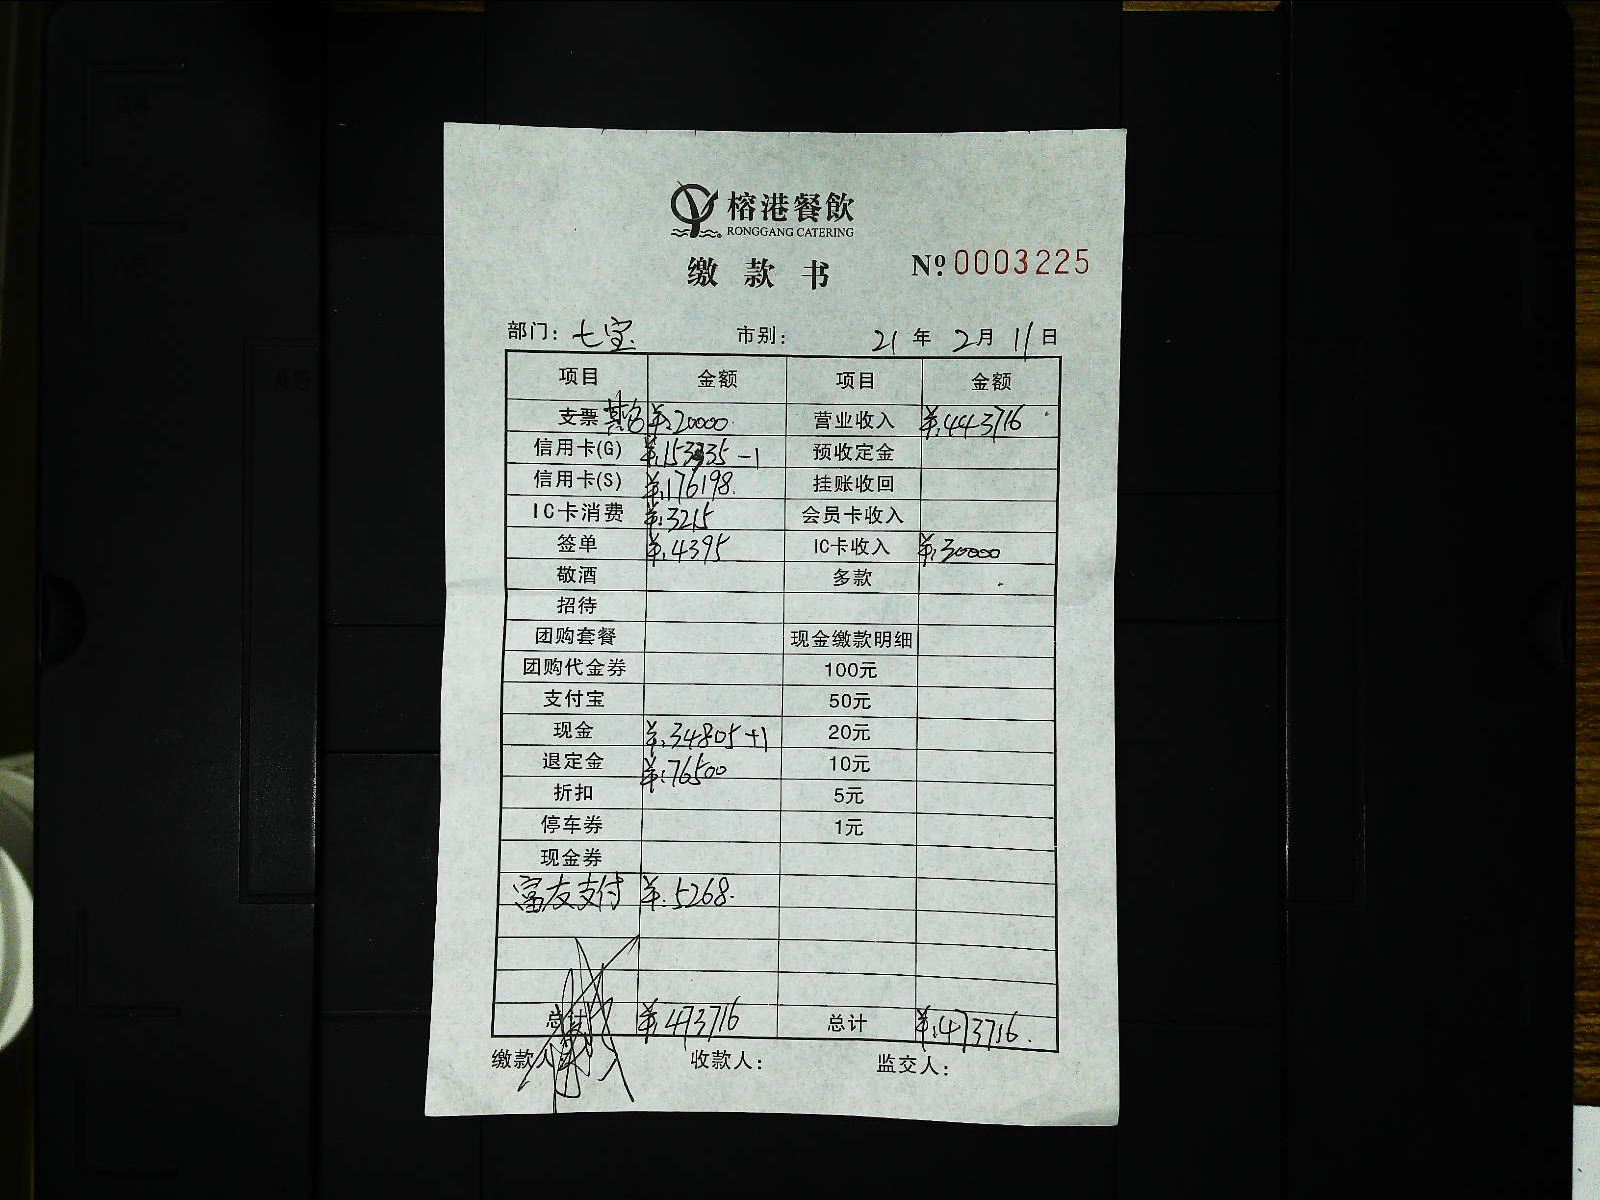 榕港餐飲
RONGGANG CATERING
缴款书 Nº 0003225
部门: 七宝 市别: 21年2月11日
项目 金额 项目 金额
支票 其它 ¥.20000. 营业收入 ¥.443716
信用卡(G) ¥.153335-1 预收定金
信用卡(S) ¥.176198. 挂账收回
IC卡消费 ¥.3215 会员卡收入
签单 ¥.4395 IC卡收入 ¥.30000
敬酒 多款
招待
团购套餐 现金缴款明细
团购代金券 100元
支付宝 50元
现金 ¥.34805+1 20元
退定金 ¥.76500 10元
折扣 5元
停车券 1元
现金券
富友支付 ¥.5268.
总计 ¥.473716 总计 ¥.473716.
缴款人 收款人: 监交人: